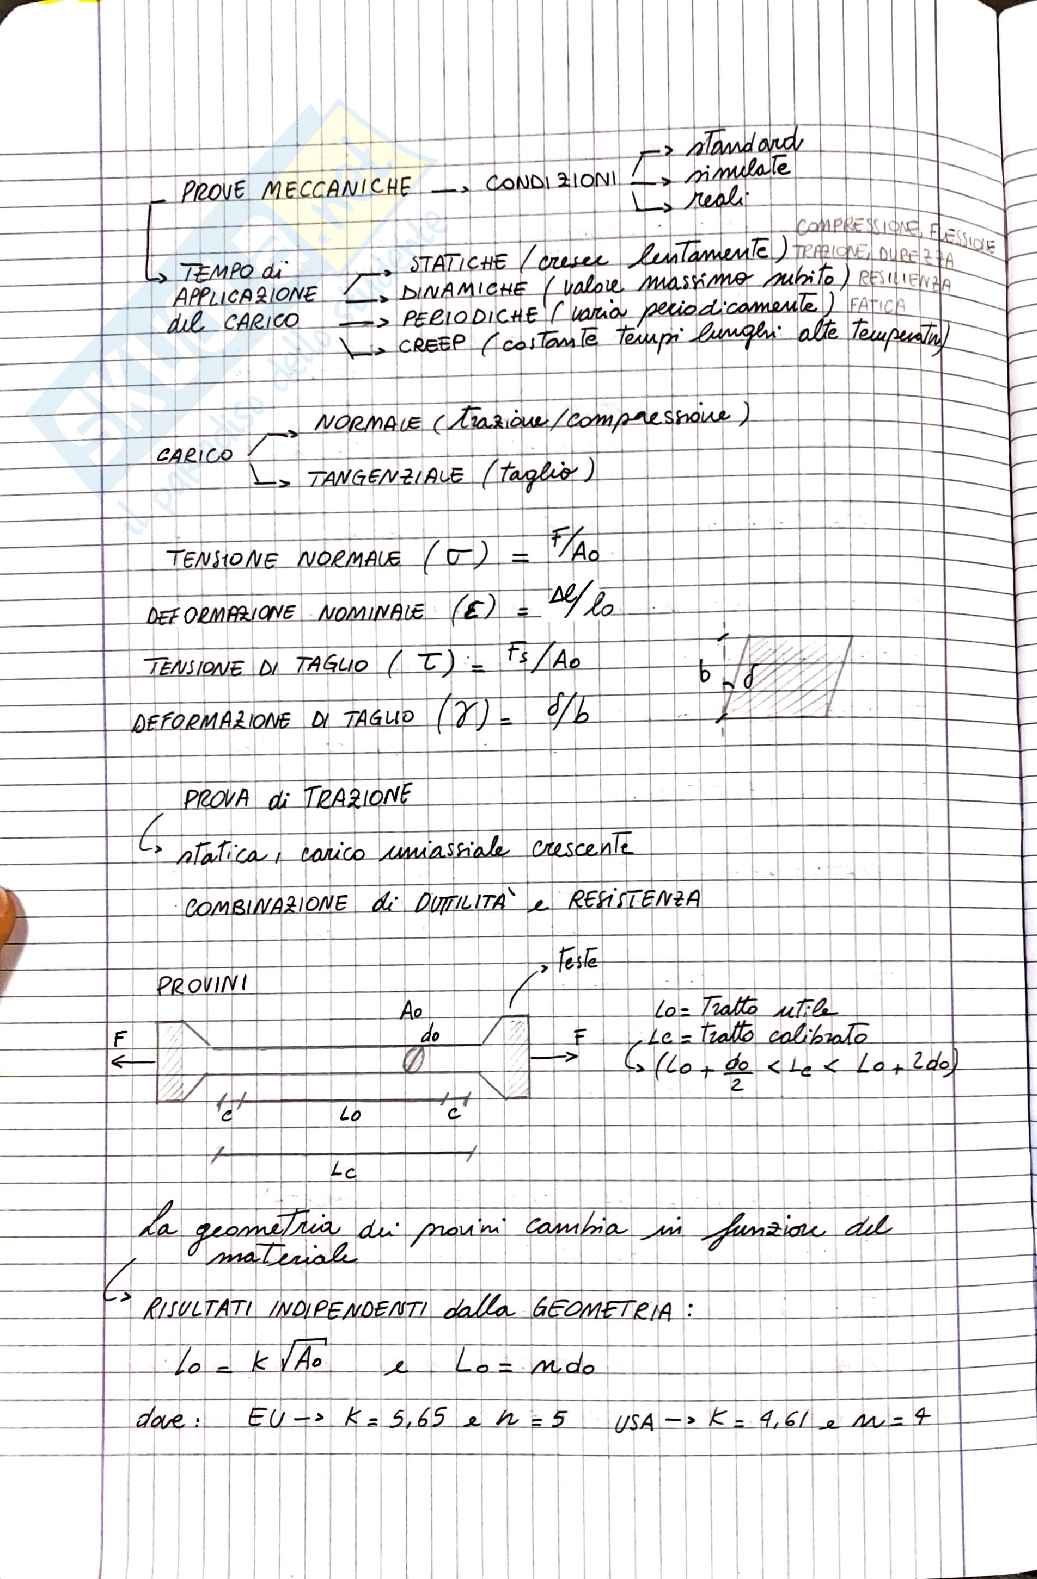 standard
PROVE MECCANICHE → CONDIZIONI → simulate
reali
COMPRESSIONE, FLESSIONE
TEMPO di → STATICHE (cresce lentamente) TRAZIONE, DUREZZA
APPLICAZIONE → DINAMICHE (valore massimo subito) RESILIENZA
del CARICO → PERIODICHE (varia periodicamente) FATICA
→ CREEP (costante tempi lunghi alte temperature)
NORMALE (trazione/compressione)
CARICO
TANGENZIALE (taglio)
TENSIONE NORMALE (σ) = F/A0
DEFORMAZIONE NOMINALE (ε) = Δl/l0
TENSIONE DI TAGLIO (τ) = Fs/A0
b δ
DEFORMAZIONE DI TAGLIO (γ) = δ/b
PROVA di TRAZIONE
statica, carico uniassiale crescente
COMBINAZIONE di DUTTILITÀ e RESISTENZA
Teste
PROVINI
A0 L0 = Tratto utile
F d0 F Lc = Tratto calibrato
(L0 + d0/2 < Lc < L0 + 2d0)
c L0 c
Lc
La geometria dei provini cambia in funzione del
materiale
RISULTATI INDIPENDENTI dalla GEOMETRIA:
L0 = K √A0 e L0 = n d0
dove: EU → K = 5,65 e n = 5 USA → K = 4,61 e n = 4